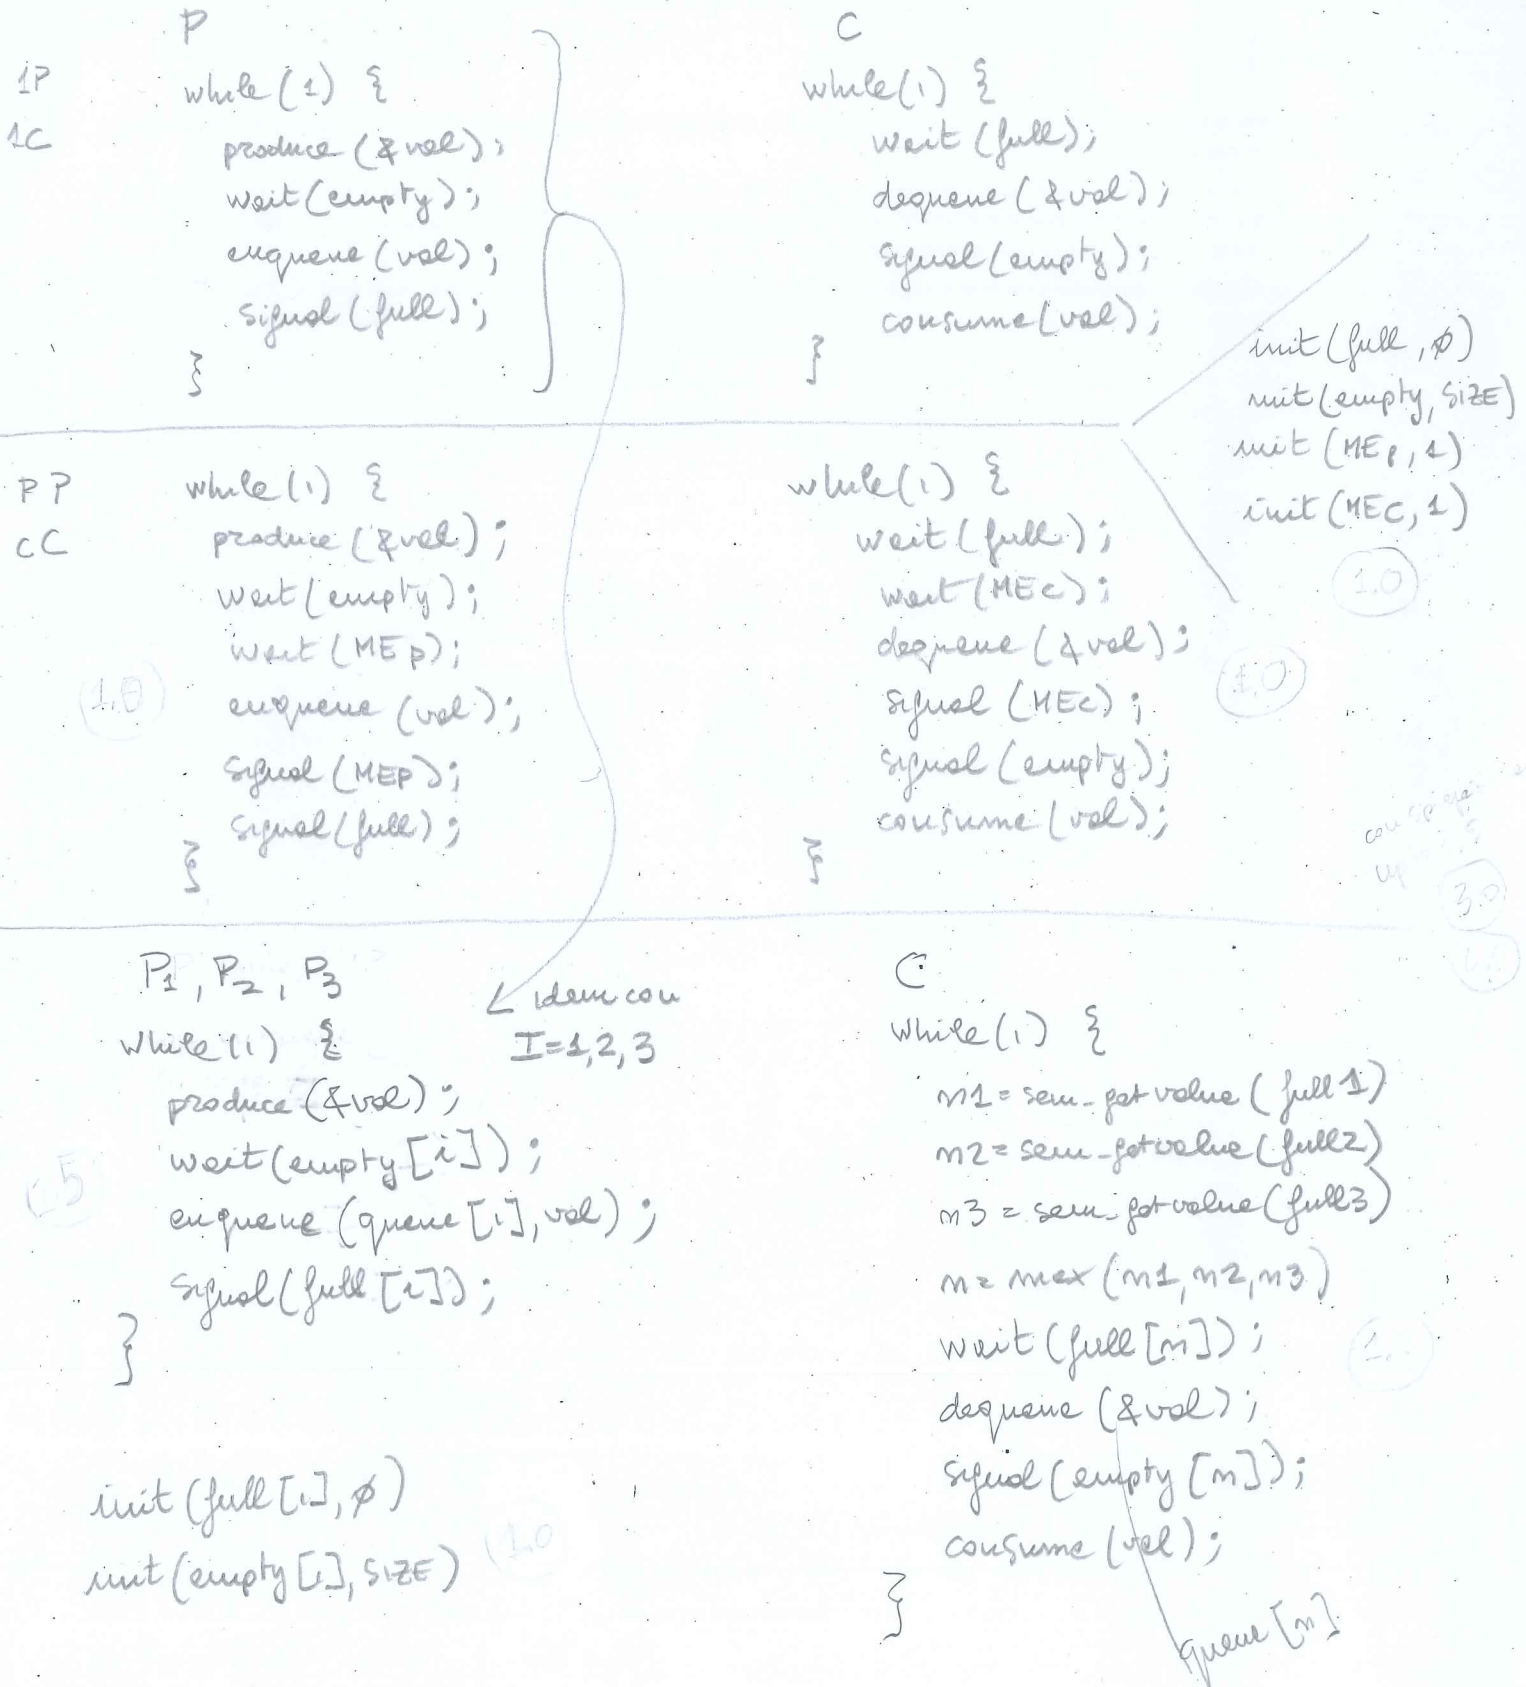 P
1P
1C
while(1) {
produce(&val);
wait(empty);
enqueue(val);
signal(full);
}
C
while(1) {
wait(full);
dequeue(&val);
signal(empty);
consume(val);
}
init(full, ø)
init(empty, SIZE)
init(MEp, 1)
init(MEC, 1)
1.0
PP
CC
while(1) {
produce(&val);
wait(empty);
wait(MEp);
enqueue(val);
signal(MEP);
signal(full);
}
1.0
while(1) {
wait(full);
wait(MEC);
dequeue(&val);
signal(MEC);
signal(empty);
consume(val);
}
1.0
3.0
P1, P2, P3
idem con
I=1,2,3
while(1) {
produce(&val);
wait(empty[i]);
enqueue(queue[i], val);
signal(full[i]);
}
init(full[i], ø)
init(empty[i], SIZE)
1.0
C
while(1) {
n1 = sem_getvalue(full1)
n2 = sem_getvalue(full2)
n3 = sem_getvalue(full3)
n = max(n1, n2, n3)
wait(full[n]);
dequeue(&val);
signal(empty[n]);
consume(val);
}
queue[n]